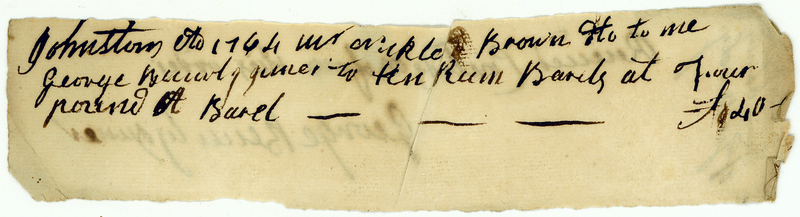 Johnston Oto 1764 Mr Nickle Brown Dto to me
George Bennly juner to ten Rum Barels at four
pound A Barel — — — £ 40